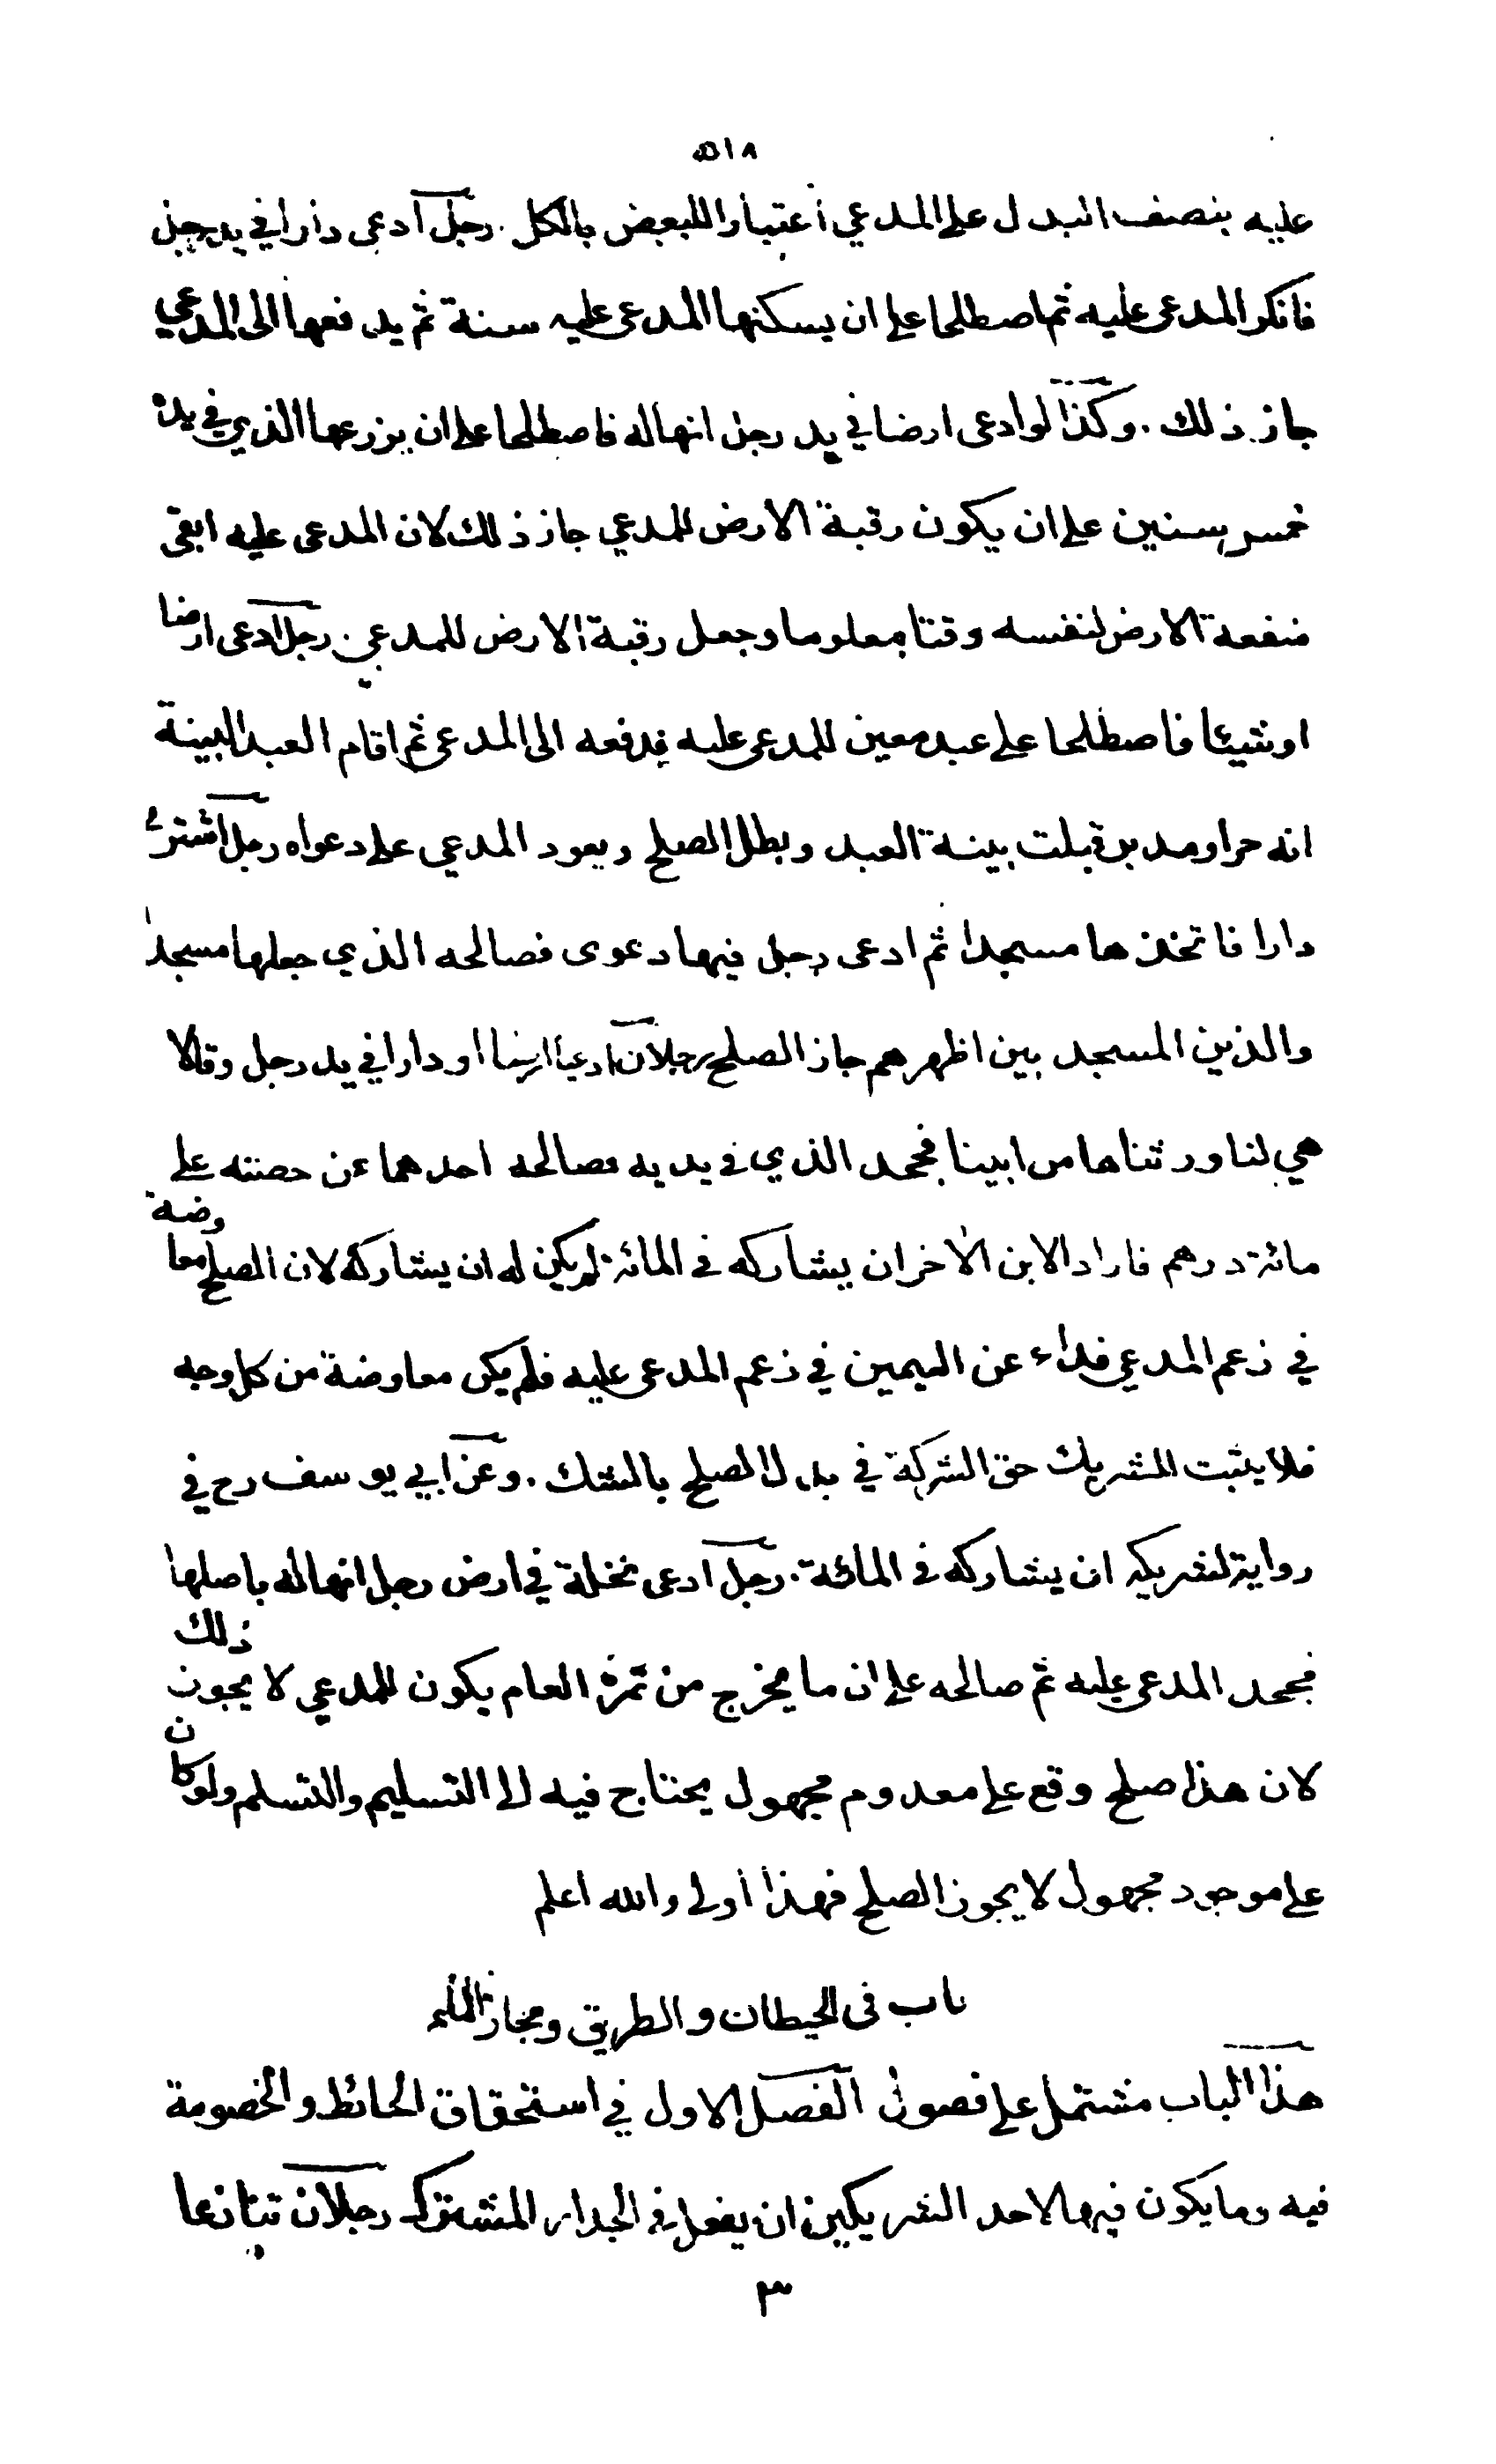 ٥١٨
عليه بنصف البدل على المدعي اعتبارا للبعض بالكل . رجل ادعى دارا في يد رجل
فانكر المدعى عليه ثم اصطلحا على ان يسكنها المدعى عليه سنة ثم يدفعها الى المدعي
جاز ذلك . وكذا لوادعى ارضا في يد رجل انها له فاصطلحا على ان يزرعها الذي في يده
خمس سنين على ان يكون رقبة الارض للمدعي جاز ذلك لان المدعى عليه ابقى
منفعة الارض لنفسه وقتا معلوما وجعل رقبة الارض للمدعي . رجل ادعى ارضا
او شيئا فاصطلحا على عبد معين للمدعى عليه فدفعه الى المدعى ثم اقام العبد البينة
انه حر او مدبر قبلت بينة العبد وبطل الصلح ويعود المدعي على دعواه رجل اشترى
دارا فاتخذها مسجدا ثم ادعى رجل فيها دعوى فصالحه الذي جعلها مسجدا
والذين المسجد بين اظهرهم جاز الصلح رجلان ادعيا ارضا او دارا في يد رجل وقالا
هي لنا ورثناها من ابينا فجحد الذي في يديه فصالحه احدهما عن حصته على
مائة درهم فاراد الابن الاخر ان يشاركه في المائة لم يكن له ان يشاركه لان الصلح معاوضة
في زعم المدعي فداء عن اليمين في زعم المدعى عليه فلم يكن معاوضة من كل وجه
فلا يثبت للشريك حق الشركة في بدل الصلح بالشك . وعن ابي يوسف رح في
رواية لشريكه ان يشاركه في المائة . رجل ادعى نخلة في ارض رجل انها له باصلها
فجحد المدعى عليه ثم صالحه على ان ما يخرج من ثمرة العام يكون للمدعي لا يجوز ذلك
لان هذا صلح وقع على معدوم مجهول يحتاج فيه الى التسليم والتسلم ولو كان
على موجود مجهول لا يجوز الصلح فهذا اولى والله اعلم
باب في الحيطان والطريق ومجاز الماء
هذا الباب مشتمل على فصول الفصل الاول في استحقاق الحائط والخصومة
فيه وما يكون فيها لاحد الشريكين ان يفعل في الجدار المشترك رجلان تنازعا
٣